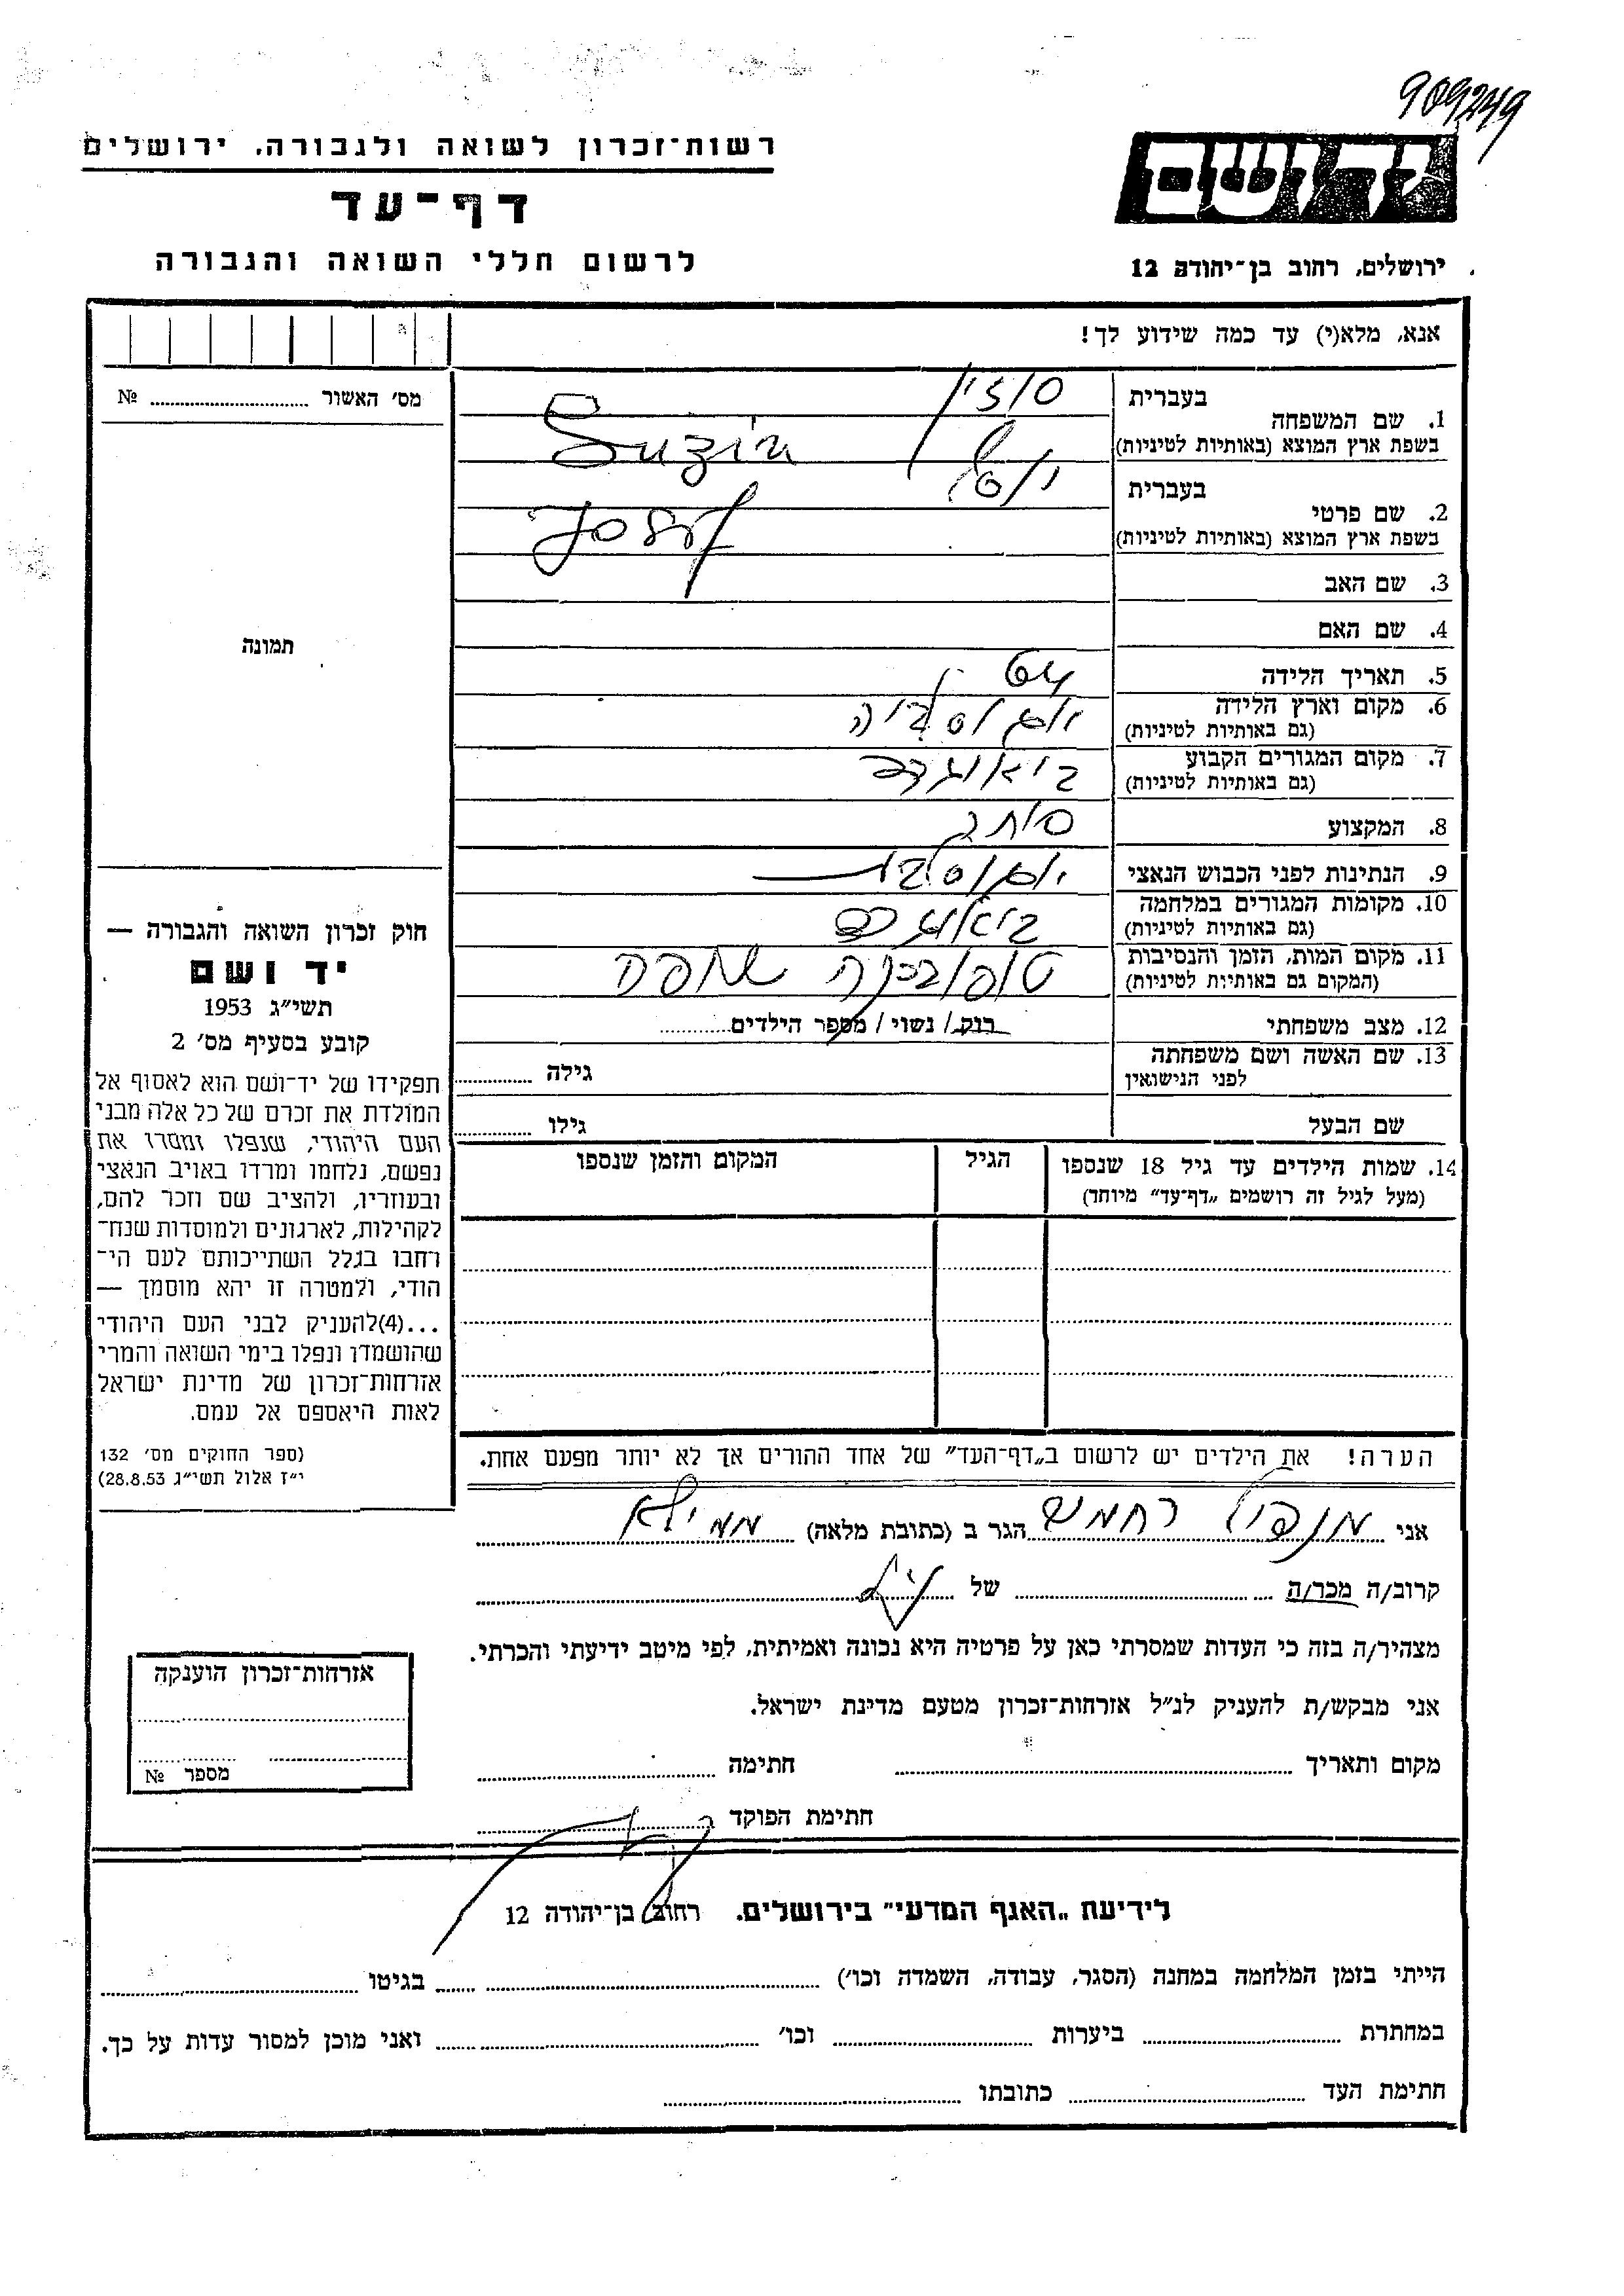 909249
רשות־זכרון לשואה ולגבורה. ירושלים
דף־עד
לרשום חללי השואה והגבורה
יד ושם
ירושלים, רחוב בן־יהודה 12
אנא, מלא(י) עד כמה שידוע לך!
1. שם המשפחה
בעברית
סוזין
בשפת ארץ המוצא (באותיות לטיניות)
Suzin
2. שם פרטי
בעברית
יוסף
בשפת ארץ המוצא (באותיות לטיניות)
Josef
3. שם האב
4. שם האם
5. תאריך הלידה
6. מקום וארץ הלידה
(גם באותיות לטיניות)
יוגוסלביה
7. מקום המגורים הקבוע
(גם באותיות לטיניות)
8. המקצוע
סוחר
9. הנתינות לפני הכבוש הנאצי
10. מקומות המגורים במלחמה
(גם באותיות לטיניות)
11. מקום המות, הזמן והנסיבות
(המקום גם באותיות לטיניות)
12. מצב משפחתי
רוק / נשוי / מספר הילדים
13. שם האשה ושם משפחתה
לפני הנישואין
גילה
שם הבעל
גילו
14. שמות הילדים עד גיל 18 שנספו
(מעל לגיל זה רושמים „דף־עד” מיוחד)
הגיל
המקום והזמן שנספו
הערה! את הילדים יש לרשום ב„דף־העד” של אחד ההורים אך לא יותר מפעם אחת.
מס׳ האשור № 
תמונה
חוק זכרון השואה והגבורה —
יד ושם
תשי״ג 1953
קובע בסעיף מס׳ 2
תפקידו של יד־ושם הוא לאסוף אל
המולדת את זכרם של כל אלה מבני
העם היהודי, שנפלו ומסרו את
נפשם, נלחמו ומרדו באויב הנאצי
ובעוזריו, ולהציב שם וזכר להם,
לקהילות, לארגונים ולמוסדות שנח־
רחבו בגלל השתייכותם לעם הי־
הודי, ולמטרה זו יהא מוסמך —
...(4) להעניק לבני העם היהודי
שהושמדו ונפלו בימי השואה והמרי
אזרחות־זכרון של מדינת ישראל
לאות היאספם אל עמם.
(ספר החוקים מס׳ 132
י״ז אלול תשי״ג 28.8.53)
אני רחמים הגר ב (כתובת מלאה) ממילא
קרוב/ה מכר/ה של
מצהיר/ה בזה כי העדות שמסרתי כאן על פרטיה היא נכונה ואמיתית, לפי מיטב ידיעתי והכרתי.
אני מבקש/ת להעניק לנ״ל אזרחות־זכרון מטעם מדינת ישראל.
מקום ותאריך חתימה
חתימת הפוקד
אזרחות־זכרון הוענקה
מספר №
לידיעת „האגף המדעי” בירושלים. רחוב בן־יהודה 12
הייתי בזמן המלחמה במחנה (הסגר, עבודה, השמדה וכו׳) בגיטו
במחתרת ביערות וכו׳ ואני מוכן למסור עדות על כך.
חתימת העד כתובתו